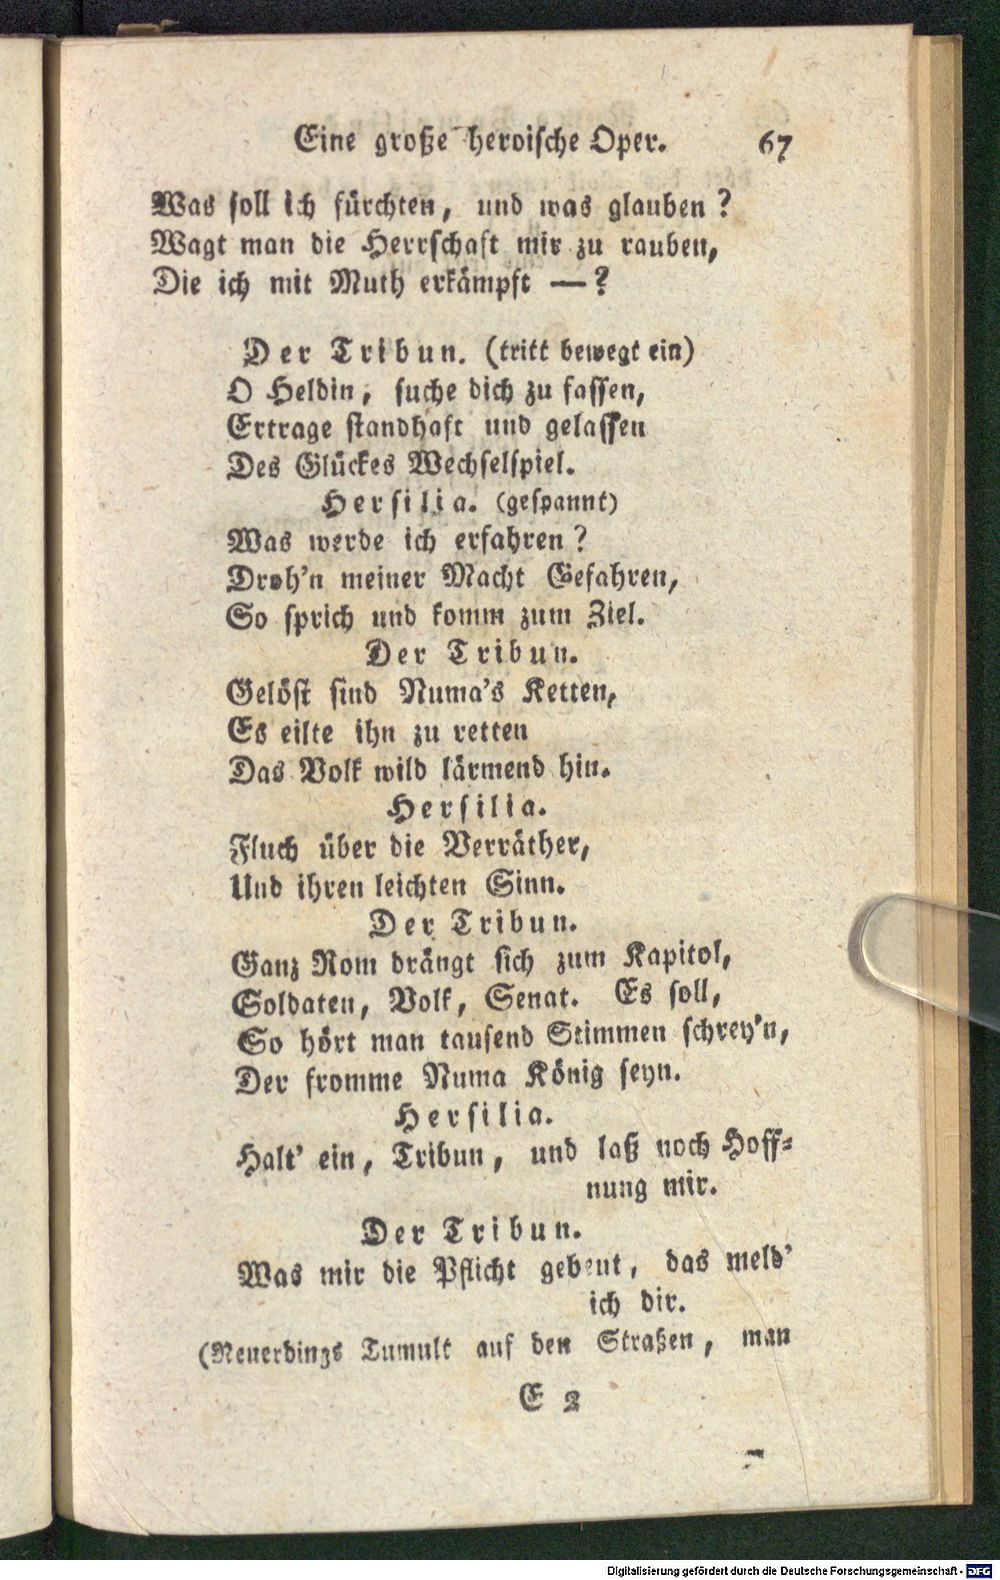 Eine große heroische Oper. 67
Was soll ich fürchten, und was glauben?
Wagt man die Herrschaft mir zu rauben,
Die ich mit Muth erkämpft —?
Der Tribun. (tritt bewegt ein)
O Heldin, suche dich zu fassen,
Ertrage standhaft und gelassen
Des Glückes Wechselspiel.
Hersilia. (gespannt)
Was werde ich erfahren?
Droh'n meiner Macht Gefahren,
So sprich und komm zum Ziel.
Der Tribun.
Gelöst sind Numa's Ketten,
Es eilte ihn zu retten
Das Volk wild lärmend hin.
Hersilia.
Fluch über die Verräther,
Und ihren leichten Sinn.
Der Tribun.
Ganz Rom drängt sich zum Kapitol,
Soldaten, Volk, Senat. Es soll,
So hört man tausend Stimmen schrey'n,
Der fromme Numa König seyn.
Hersilia.
Halt' ein, Tribun, und laß noch Hoff-
nung mir.
Der Tribun.
Was mir die Pflicht gebeut, das meld'
ich dir.
(Neuerdings Tumult auf den Straßen, man
E 2
Digitalisierung gefördert durch die Deutsche Forschungsgemeinschaft - DFG